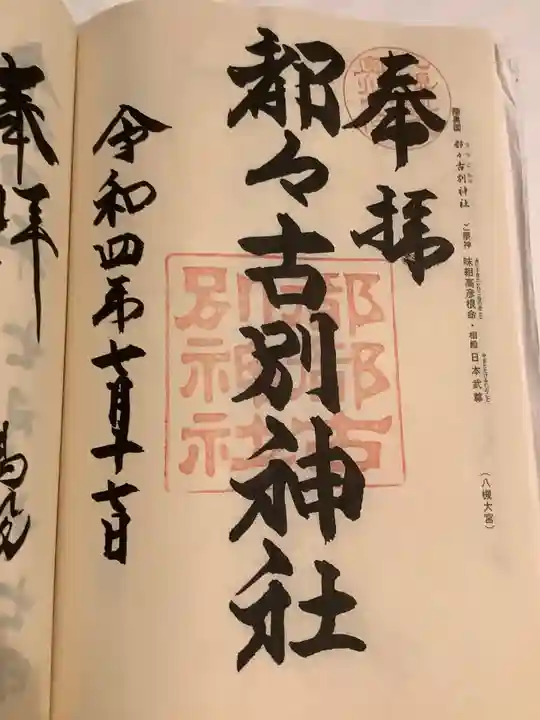 陸奥国 都々古別神社 ご祭神 味耜高彦根命・相殿 日本武尊
(八槻大宮)
奉拝
都々古別神社
都都古
別神社
令和四年七月十七日
奉拝